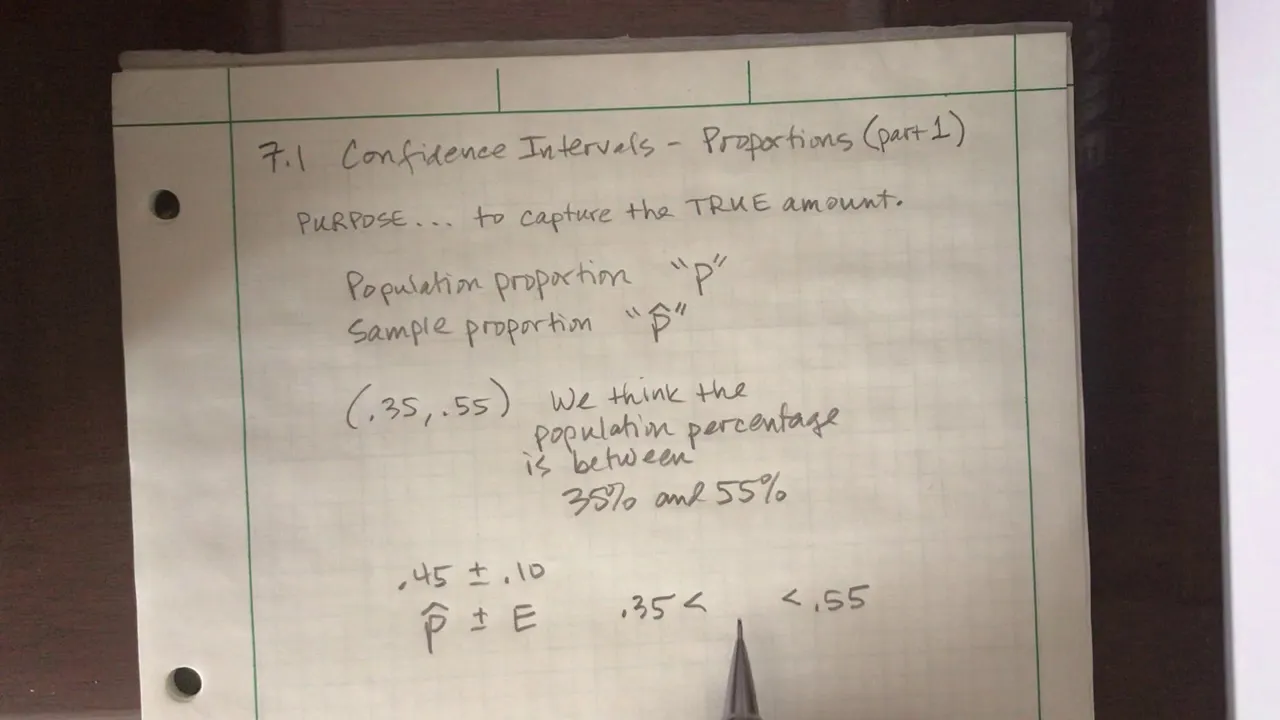 7.1 Confidence Intervals - Proportions (part 1)
PURPOSE... to capture the TRUE amount.
Population proportion "p"
Sample proportion "p̂"
(.35, .55) We think the
population percentage
is between
35% and 55%
.45 ± .10
p̂ ± E .35 < < .55